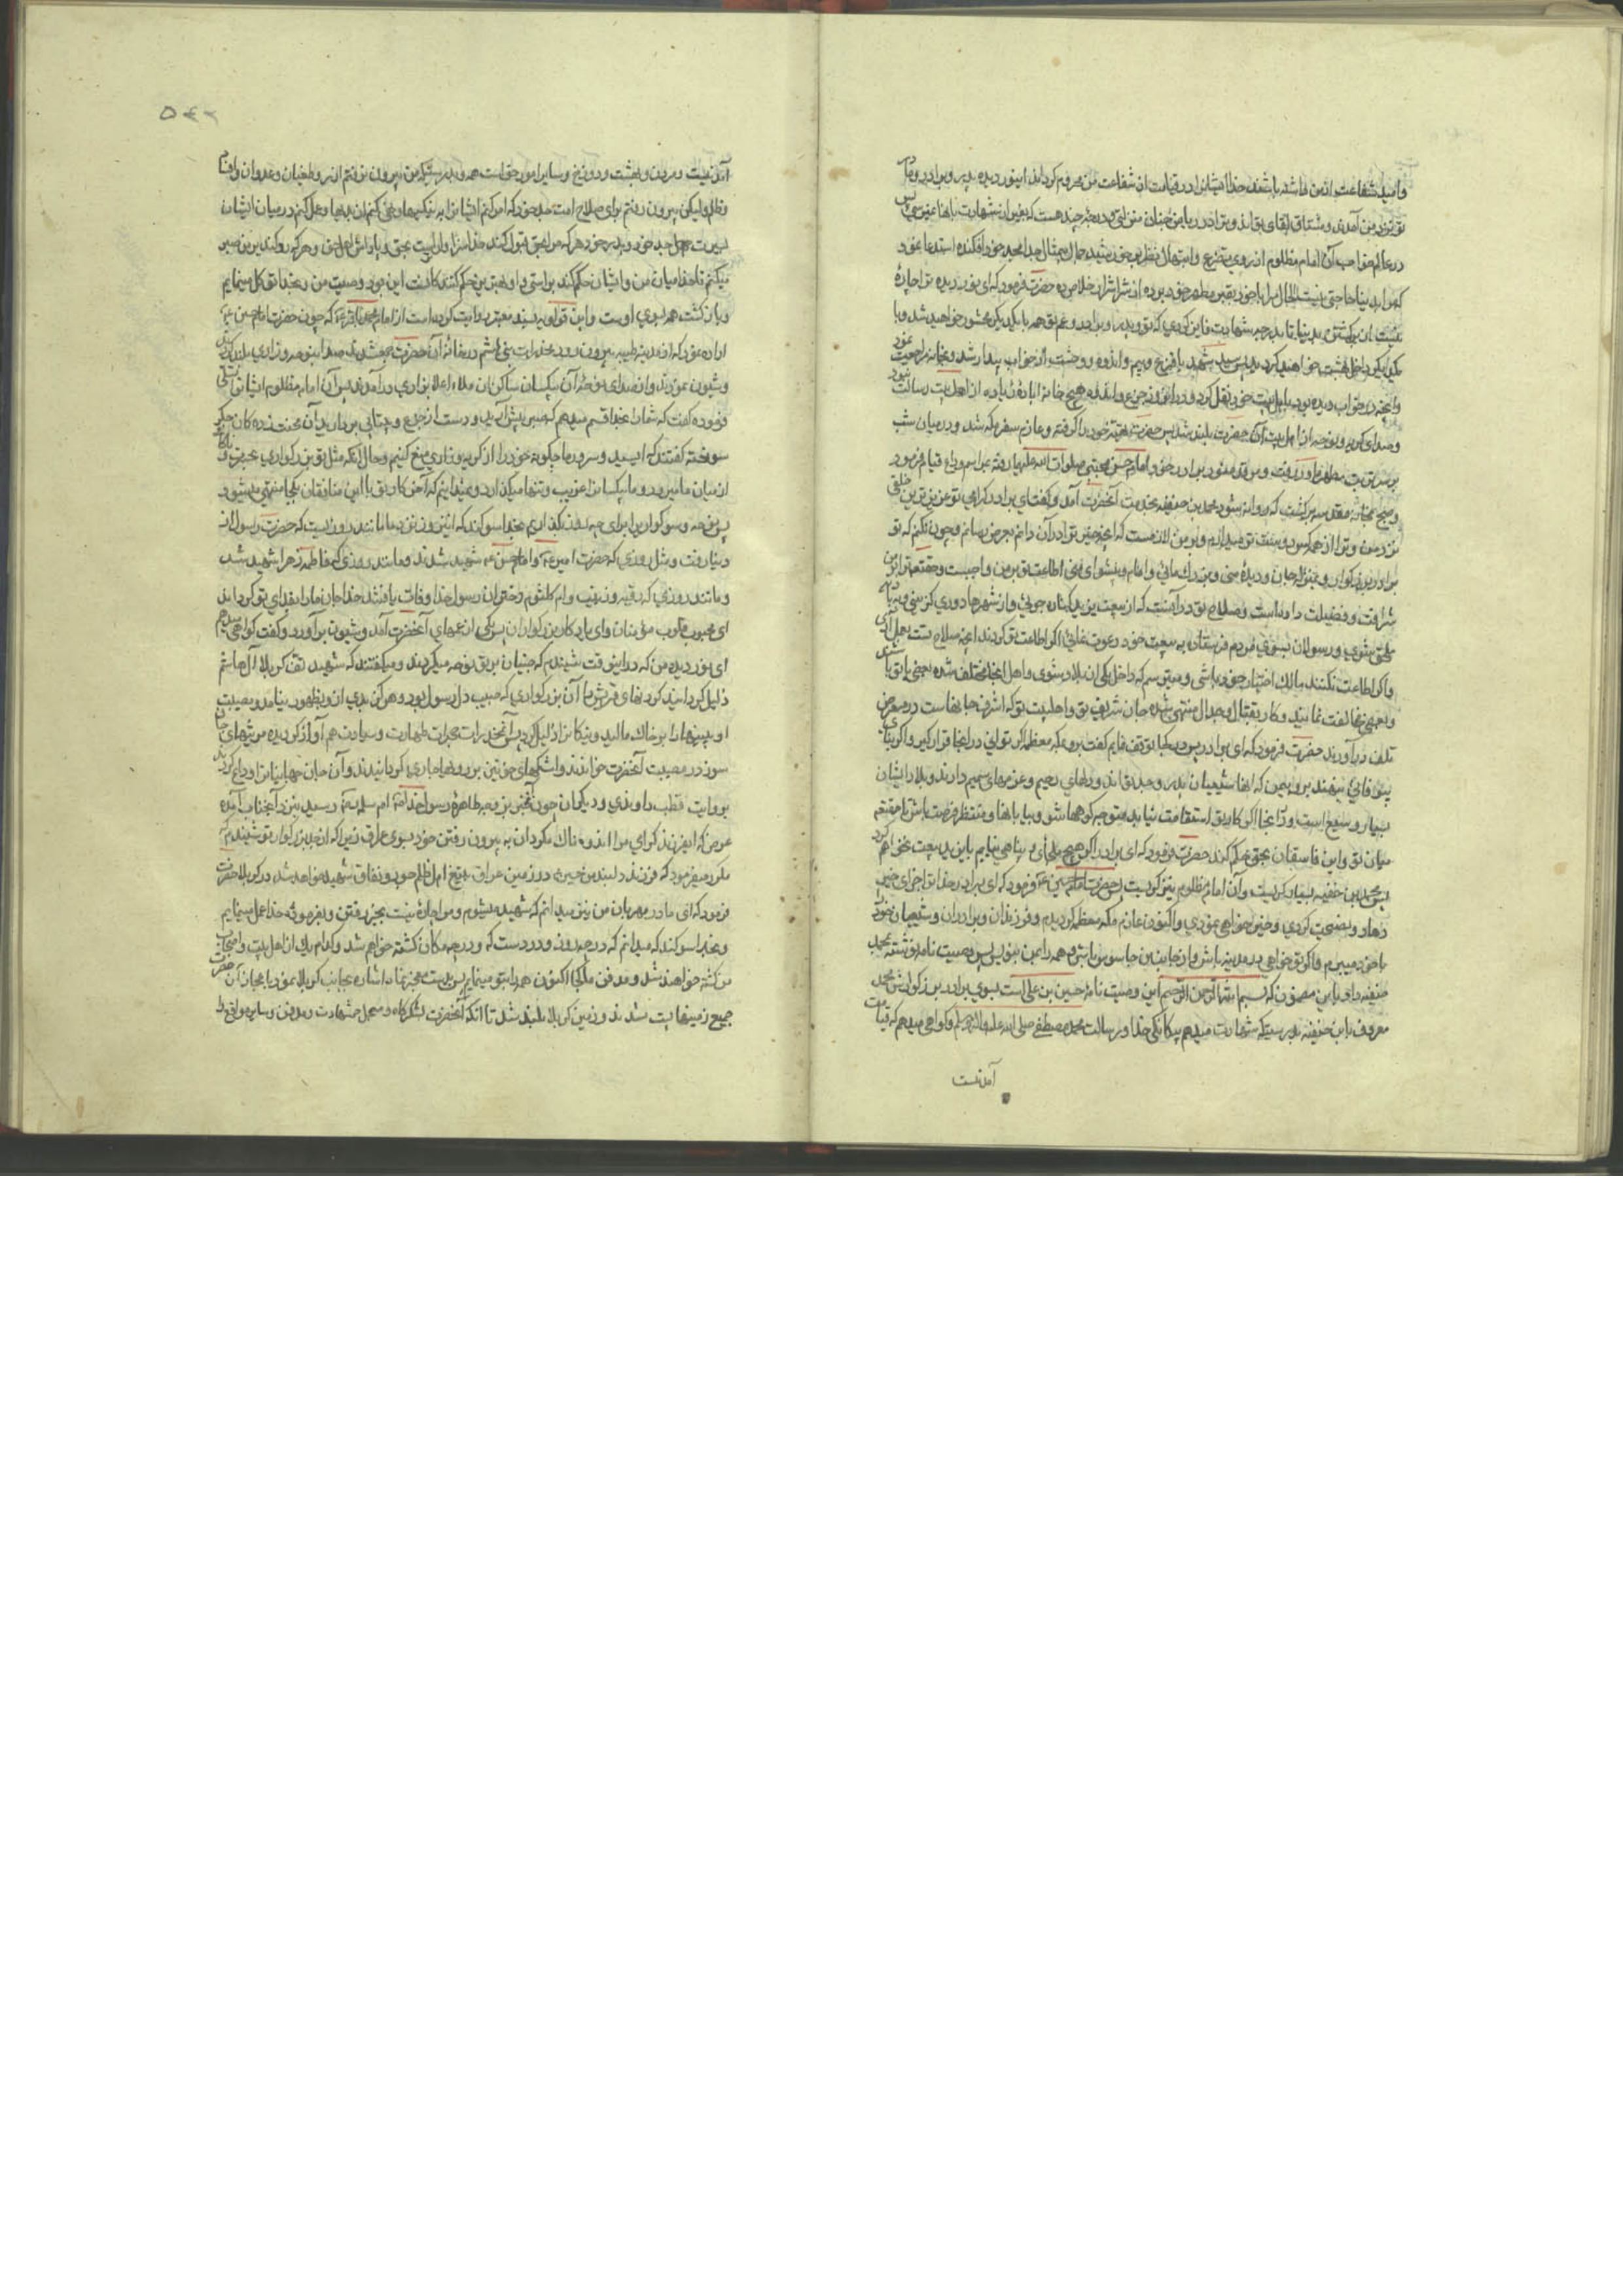 و امید شفاعت از من داشته باشند خدا ایشانرا در قیامت از شفاعت من محروم گرداند ای نور دیده پدر و برادر و مادر
تو نزد من آمدند و مشتاق لقای تواند و ترا در ریاض جنان منزلتی و درجه چند هست که بغیر از شهادت بآنها نمیرسی پس
در عالم خواب آن امام مظلوم از روی تضرع و ابتهال نظر بر خورشید جمال بیمثال جد امجد خود افکنده استدعا نمود
که مرا بدنیا حاجتی نیست الحال مرا با خود بقبر مطهر خود برده از شر اشرار خلاص ده حضرت فرمود که ای نور دیده ترا چاره
نیست از برگشتن بدنیا تا بدرجه شهادت فایز گردی که تو و پدر و برادر و عم تو همه با یکدیگر محشور خواهید شد و با
یکدیگر داخل بهشت خواهید گردید پس سید شهید با فزع و بیم و اندوه و وحشت از خواب بیدار شد و بخانه مراجعت نمود
و آنچه در خواب دیده بود باهل بیت خود نقل کرد و در آنروز جزع و اندوه هیچ خانه آباده زیاده از اهل بیت رسالت نبود
و صدای گریه و نوحه از اهل بیت آن حضرت بلند شد پس حضرت تهیه خود را گرفته و عازم سفر مکه شد و در میان شب
بر سر تربت مادر رفت و مرقد منور برادر خود امام حسن مجتبی صلوات الله علیهما رفته مراسم وداع قیام فرمود
و صبح بخانه مقدسه برگشت که روانه شود محمد بن حنفیه بخدمت آنحضرت آمد و گفت ای برادر گرامی تو عزیزترین خلقی
نزد من و ترا از همه کس دوست تر میدارم و بر من لازمست که آنچه خیر ترا در آن دانم بعرض رسانم و چون نکنم که تو
برادر بزرگوار و بمنزله جان و دیده منی و بزرگ مائی و امام و پیشوای منی اطاعت تو بر من واجبست و حقتعالی ترا بر من
شرافت و فضیلت داده است و صلاح تو در آنست که از بیعت یزید کناره جوئی و از شهرها دوری گزینی و به بادیه
ملحق شوی و رسولان بسوی مردم فرستاده به بیعت خود دعوت نمائی اگر اطاعت تو کردند آنچه صلاح تست بعمل آری
و اگر اطاعت نکنند مالک اختیار خود باشی و میترسم که داخل یکی از بلاد شوی و اهل آنجا مختلف شده بعضی با تو باشند
و بعضی مخالفت نمایند و کار بقتال و جدال منتهی شده جان شریف تو و اهلبیت تو که اشرف جانهاست در معرض
تلف درآورند حضرت فرمود که ای برادر پس در کجا توقف نمایم گفت برو بمکه معظمه اگر توانی در آنجا قرار گیر و اگر با تو بنای
بیوفائی نهند برو به یمن که آنها شیعیان پدر و جد تو اند و دلهای رحیم و عزمهای صمیم دارند و بلاد ایشان
بسیار وسیع است و در آنجا اگر کار تو استقامت نیابد متوجه کوهها شو و بیابانها و منتظر فرصت باش تا حقتعالی
میان تو و این فاسقان بحق حکم کند حضرت فرمود که ای برادر اگر هیچ ملجأی و پناهی نیابم با یزید بیعت نخواهم کرد
پس محمد بن حنفیه بسیار گریست و آن امام مظلوم نیز گریست پس حضرت امام حسین ع فرمود که ای برادر خدا ترا جزای خیر
دهاد و نصیحت کردی و خیر خواهی نمودی و اکنون عازم مکه معظمه گردیده ام و فرزندان و برادران و شیعیان خود را
با خود میبرم و اگر تو خواهی در مدینه باش و از جانب من جاسوس باش و همه را بمن بنویس پس وصیت نامه نوشته بمحمد
حنفیه داد باین مضمون که بسم الله الرحمن الرحیم این وصیت نامه حسین بن علی است بسوی برادر بزرگوارش محمد
معروف بابن حنفیه بدرستیکه شهادت میدهم بیگانگی خدا و برسالت محمد مصطفی صلی الله علیه و اله وسلم و گواهی میدهم که قیامت
آمدنیست
آمدنیست و مردن و بهشت و دوزخ و سایر امور حق است همه و بدرستیکه من بیرون نرفتم از روی طغیان و عدوان و افساد
و ظلم ولیکن بیرون رفتم برای صلاح امت جد خود که امر کنم ایشانرا به نیکیها و نهی کنم از بدیها و عمل کنم در میان ایشان
بسیرت جد خود و پدر خود هر که مرا بحق قبول کند خدا سزاوار است بحق و پاداش اهل حق و هر که رد کند بر من صبر
میکنم تا خدا میان من و ایشان حکم کند براستی و او بهترین حکم کنندگانست این بود وصیت من و بخدا توکل مینمایم
و بازگشت همه بسوی اوست و ابن قولویه بسند معتبر روایت کرده است از امام محمد باقر ع که چون حضرت امام حسین ع
اراده نمود که از مدینه طیبه بیرون رود مخدرات بنی هاشم در خانه آن حضرت جمع شدند صدا بنوحه و زاری بلند کردند
و شیون نمودند و از صدای نوحه آن بیکسان ساکنان ملاء اعلا بزاری درآمدند پس آن امام مظلوم ایشانرا تسلی
فرموده گفت که شما را بخدا قسم میدهم که صبر پیش آرید و دست از جزع و بیتابی بردارید آن محنت زده کان جگر
سوخته گفتند که ای سید و سرور ما چگونه خود را از گریه و زاری منع کنیم و حال آنکه مثل تو بزرگواری بحسرت و ناکامی
از میان ما میرود و ما بیکسانرا غریب و تنها میگذارد و نمیدانیم که آخر کار تو با این منافقان بکجا منتهی میشود
پس نوحه و سوگواریرا برای چه روز بگذاریم بخدا سوگند که این روز نزد ما مانند روزیست که حضرت رسول از
دنیا رفت و مثل روزی که حضرت امیر ع و امام حسن ع شهید شدند و مانند روزی که فاطمه زهرا شهید شد
و مانند روزی که رقیه و زینب و ام کلثوم دختران رسول خدا وفات یافتند خدا جان ما را بفدای تو گرداند
ای محبوب قلوب مؤمنان و ای یادگار بزرگواران پس یکی از عمهای آنحضرت آمد و شیون برآورد و گفت گواهی میدهم
ای نور دیده من که در اینوقت شنیدم که جنیان بر تو نوحه میکردند و میگفتند که شهید تف کربلا از آل هاشم
ذلیل گردانید گردنهای قریش را آن بزرگواری که حبیب دل رسول بود و هرگز بدی از و بظهور نیامد و مصیبت
او بینیها را بر خاک مالید و نیکانرا ذلیل گردانید پس آنمخدرات حجرات طهارت و سیادت هم آواز گردیده مرثیهای جان
سوز در مصیبت آنحضرت خواندند و اشکهای خونین بر روها جاری گردانیدند و آن جان جهانیانرا وداع کردند
بروایت قطب راوندی و دیگران چون خبر بزوجه طاهره رسول خدا ص ام سلمه رسید بنزد آنجناب آمده
عرض کرد ای فرزند گرامی مرا اندوهناک مگردان به بیرون رفتن خود بسوی عراق زیرا که از جد بزرگوار تو شنیدم که
مکرر میفرمود که فرزند دلبند من حسین در زمین عراق بتیغ اهل ظلم و جور و نفاق شهید خواهد شد در کربلا حضرت
فرمود که ای مادر مهربان من نیز میدانم که شهید میشوم و مرا چاره نیست بجز رفتن و بفرموده خدا عمل مینمایم
و بخدا سوگند که میدانم که در چه روز و در دست که و در چه مکان کشته خواهم شد و کدام یک از اهل بیت و اصحاب
من کشته خواهند شد و مدفن ما کجا است اکنون همه را بتو مینمایم پس بدست معجزنما اشاره بجانب کربلا نمود باعجاز آن حضرت
جمیع زمینها پست شدند و زمین کربلا بلند شد تا آنکه آنحضرت لشکرگاه و محل شهادت و مدفن و سایر مواقع را